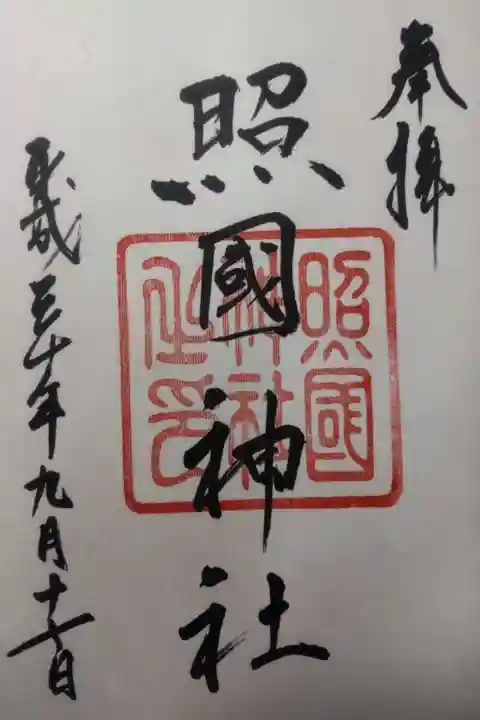 奉拝
照國神社
照國神社之印
平成三十年九月十六日